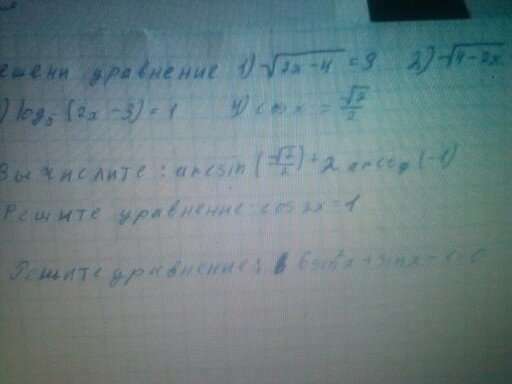 ешени уравнение 1) √2x-4 = 9 2) √4-2x
) log₅ (2x-3) = 1 4) cos x = √2/2
Вычислите: arcsin (√2/2) + 2 arcctg (-1)
Решите уравнение cos 2x = 1
Решите уравнение: 6 sin²x + sin x - 1 = 0